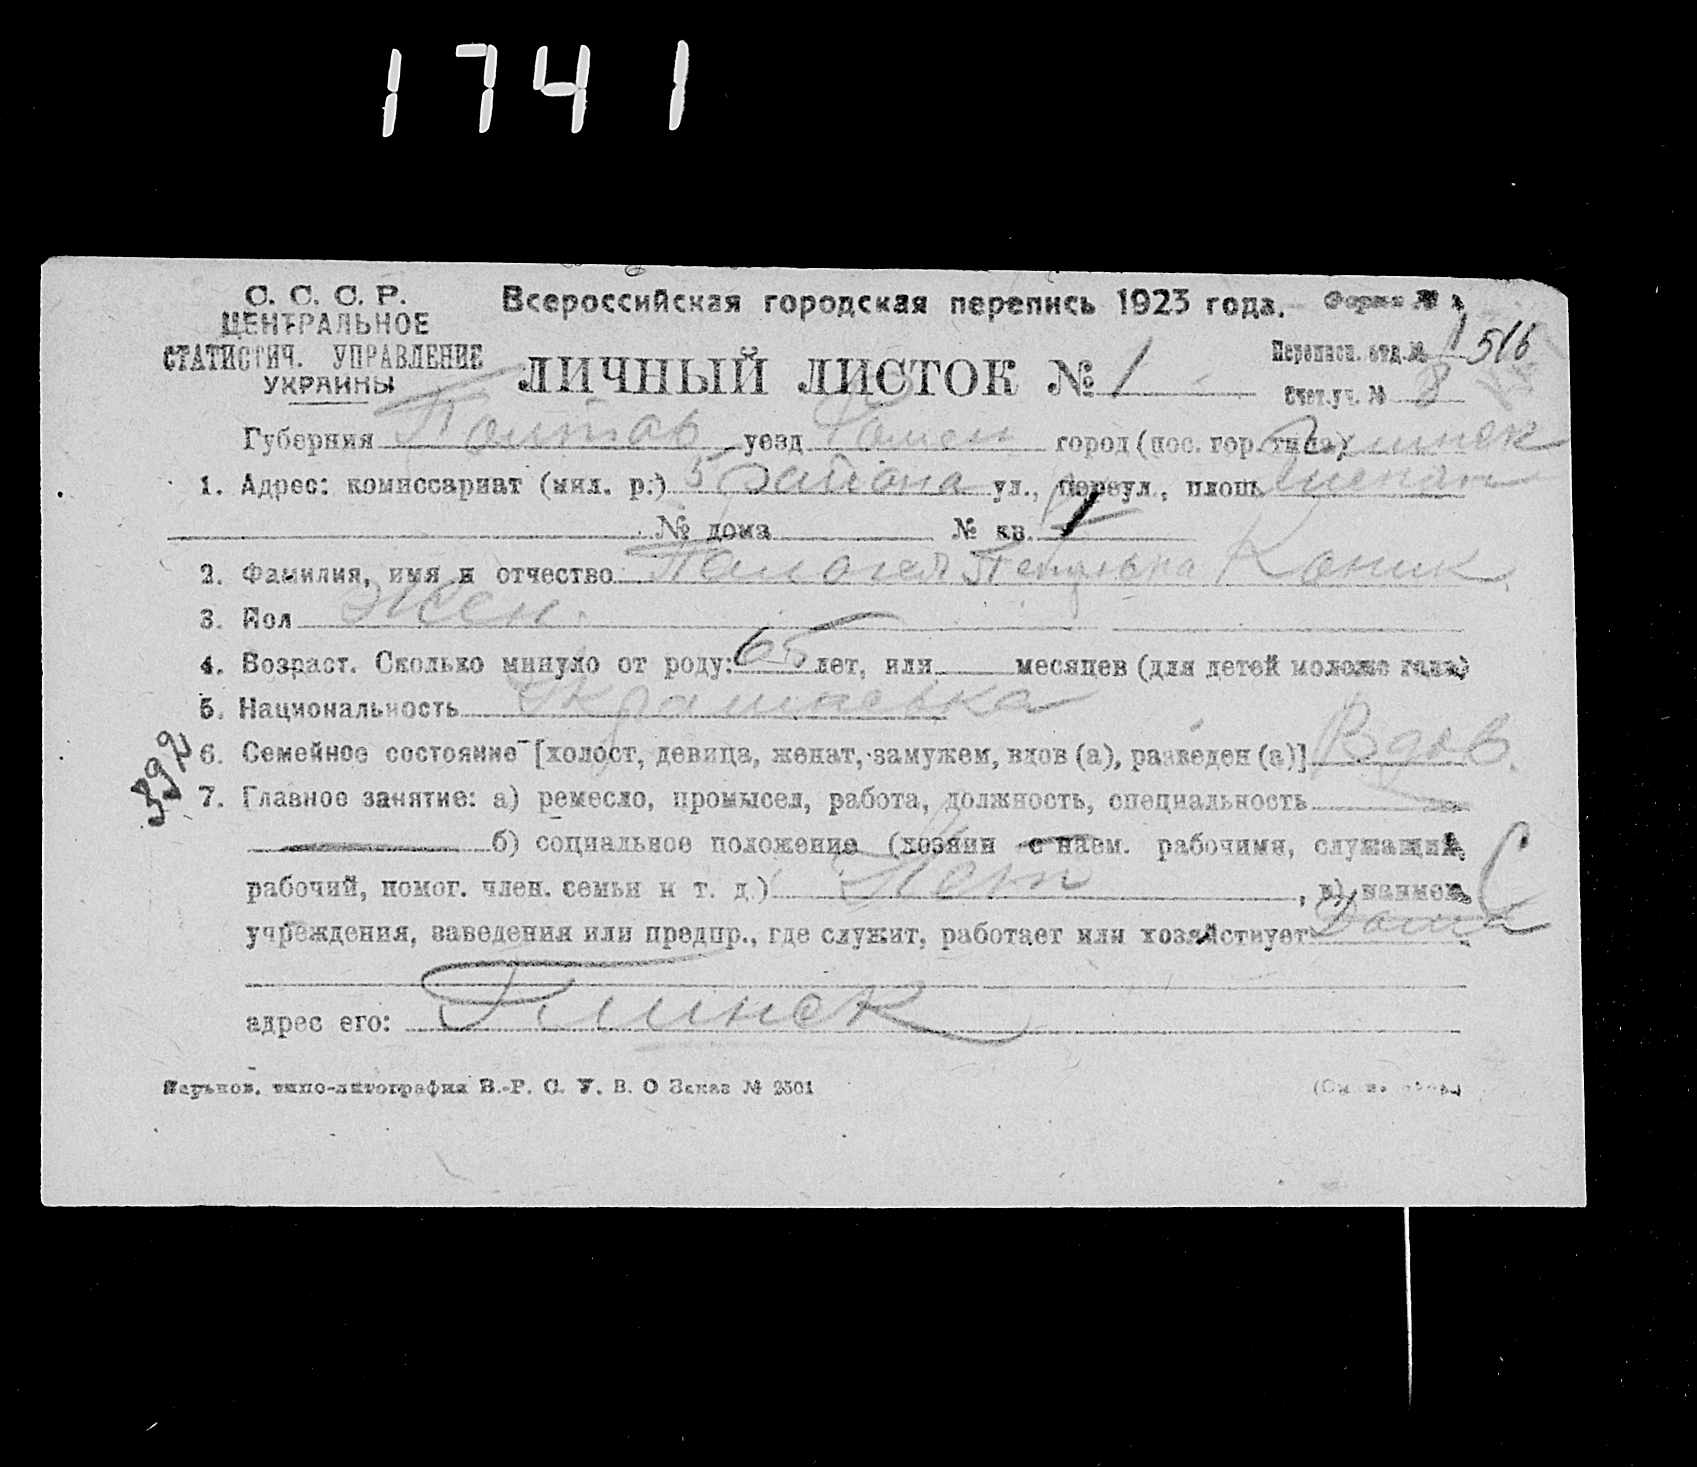 1741
С. С. С. Р.
ЦЕНТРАЛЬНОЕ
СТАТИСТИЧ. УПРАВЛЕНИЕ
УКРАИНЫ
Всероссийская городская перепись 1923 года. Форма №
ЛИЧНЫЙ ЛИСТОК № 1
Переписн. отд. № 1 516
Счет. уч. № 8
Губерния Полтав уезд Ромен город (пос. гор. типа) Глинск
1. Адрес: комиссариат (мил. р.) 5 района ул., переул., площ.
№ дома № кв. 1
2. Фамилия, имя и отчество Петровна Коник
3. Пол Жен.
4. Возраст. Сколько минуло от роду: 65 лет, или месяцев (для детей моложе года)
5. Национальность Украинська
6. Семейное состояние [холост, девица, женат, замужем, вдов (а), разведен (а)] Вдов.
392
7. Главное занятие: а) ремесло, промысел, работа, должность, специальность
б) социальное положение (хозяин с наем. рабочими, служащий,
рабочий, помог. член. семьи и т. д.) Нет, в) наимен.
учреждения, заведения или предпр., где служит, работает или хозяйствует Дома
адрес его: Глинск
Харьков, типо-литография В.-Р. С. У. В. О Заказ № 2501